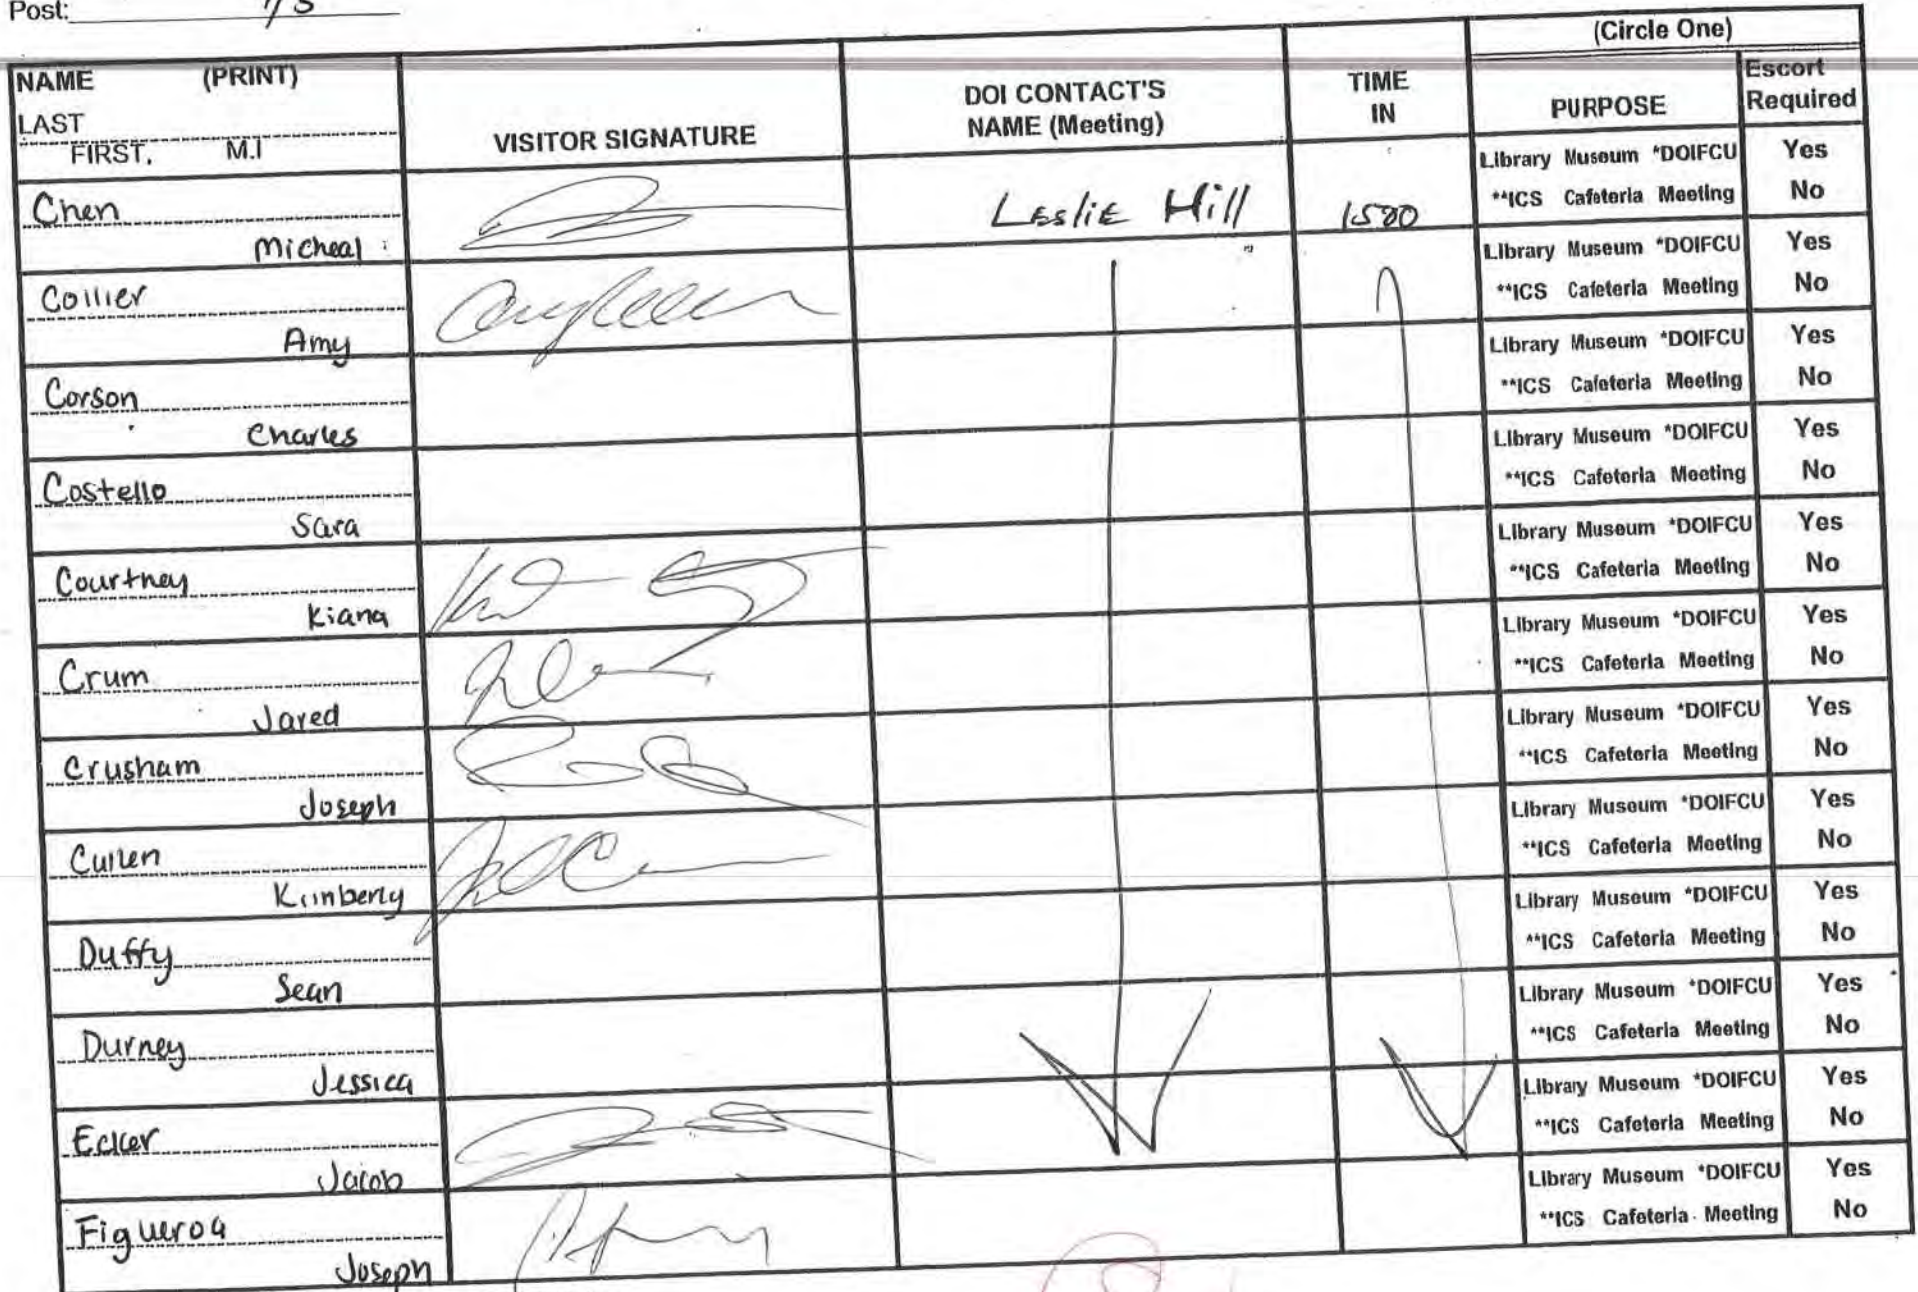 Post: 7/3
(Circle One)
NAME (PRINT)
LAST
FIRST, M.I
VISITOR SIGNATURE
DOI CONTACT'S
NAME (Meeting)
TIME
IN
PURPOSE
Escort
Required
Chen
Micheal
Leslie Hill
1500
Library Museum *DOIFCU Yes
**ICS Cafeteria Meeting No
Collier
Amy
Library Museum *DOIFCU Yes
**ICS Cafeteria Meeting No
Corson
Charles
Library Museum *DOIFCU Yes
**ICS Cafeteria Meeting No
Costello
Sara
Library Museum *DOIFCU Yes
**ICS Cafeteria Meeting No
Courtney
Kiana
Library Museum *DOIFCU Yes
**ICS Cafeteria Meeting No
Crum
Jared
Library Museum *DOIFCU Yes
**ICS Cafeteria Meeting No
Crusham
Joseph
Library Museum *DOIFCU Yes
**ICS Cafeteria Meeting No
Cullen
Kimberly
Library Museum *DOIFCU Yes
**ICS Cafeteria Meeting No
Duffy
Sean
Library Museum *DOIFCU Yes
**ICS Cafeteria Meeting No
Durney
Jessica
Library Museum *DOIFCU Yes
**ICS Cafeteria Meeting No
Ecker
Jacob
Library Museum *DOIFCU Yes
**ICS Cafeteria Meeting No
Figueroa
Joseph
Library Museum *DOIFCU Yes
**ICS Cafeteria Meeting No